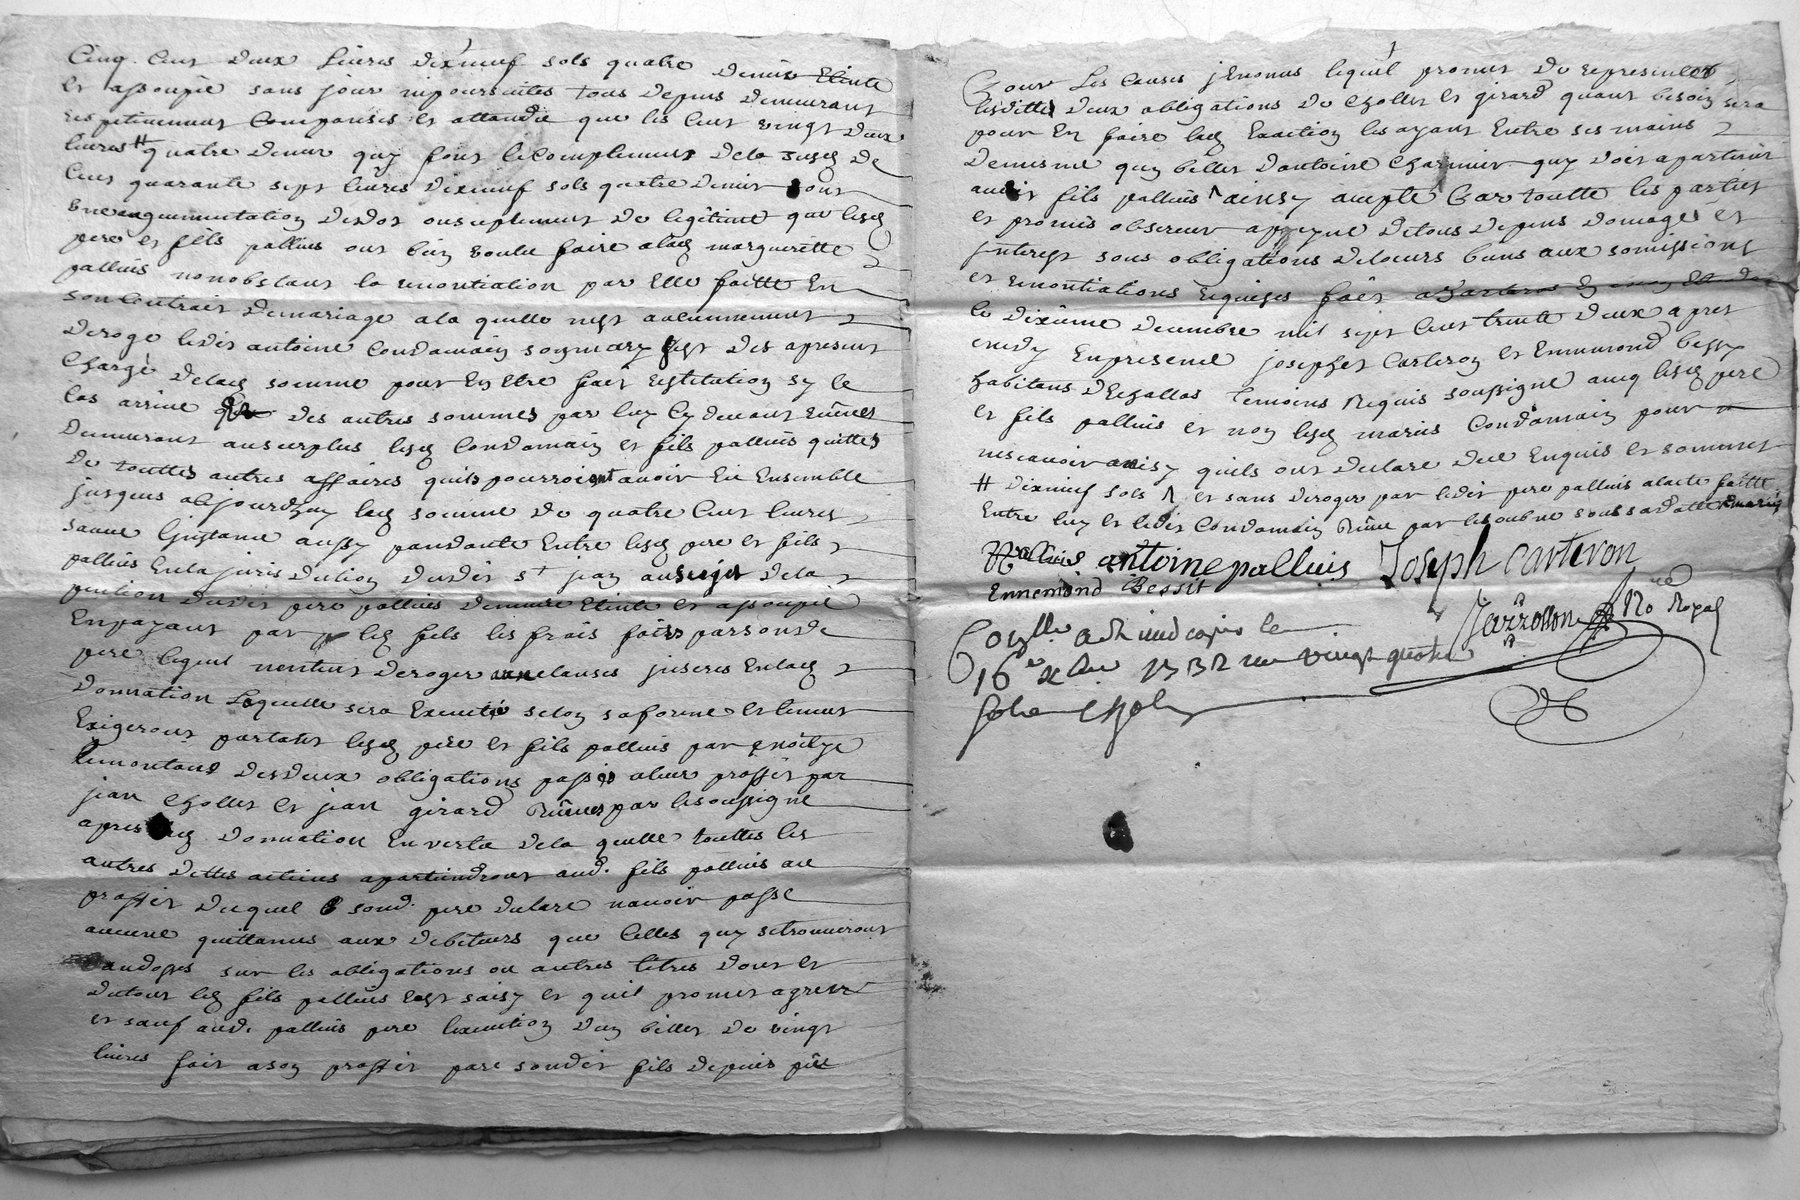 Cinq Cent deux livres dixneuf sols quatre deniers Eteinte
et assoupie sans jour ni poursuittes tous depens demeurant
respectivement Compansés et attandu que les Cent vingt deux
livres # quatre denier quy font le Complement de la susd de
Cent quarante sept livres dixneuf sols quatre denier sont
une augmentation de dot ou suplement de legitime que lesd
pere et fils palluis ont bien voulu faire a lad margueritte
palluis nonobstant la renontiation par Elle faitte En
son Contrait de mariage a la quelle nest aucunnement
deroge ledit antoine Condamain son mary sest des apresent
Chargé de lad somme pour En Etre fait restitution sy le
Cas arrive des autres sommes par luy Cy devant reçues
demeurant au surplus lesd Condamain et fils palluis quittes
de touttes autres affaires quils pourroient avoir Eu Ensemble
jusques aujourdhuy lad somme de quatre Cent livres
sauve linstance aussy pandante Entre lesd pere et fils
palluis En la jurisdiction dudit st jean au sujet de la
pention dudit pere palluis demeure Eteinte et assoupie
En payant par led fils les frais faits par sondt
pere lequel nentent deroger aux clauses inserees En lad
donnation laquelle sera Executée selon sa forme et teneur
Exigeront partant lesd pere et fils palluis par moitye
le montant des deux obligations passées a leur proffit par
jean Chollet et jean girard reçues par le soussigne
apres lad donnation En vertu de la quelle touttes les
autres dettes actives apartiendront aud. fils palluis au
proffit duquel sond. pere declare navoir passe
aucune quittances aux debiteurs que Celles quy se trouveront
Eandosses sur les obligations ou autres titres dont et
du tout led fils palluis sest saisy et quil promet agreer
et sauf aud. palluis pere lexecution dun billet de vingt
livres fait a son proffit par sondit fils depuis peu
pour les Causes y Enonces lequel promet de representer
lesdittes deux obligations de Chollet et girard quant besoin sera
pour En faire led Exaction les ayant Entre ses mains
de mesme quun billet dantoine Charmier quy doit apartenir
audit fils palluis ainsy accepté Par toutte les parties
et promis observer a peyne de tous depens domages et
jnterest sous obligations de leurs biens aux somissions
et renontiations requises fait
le dixieme decembre mil sept Cent trente deux apres
midy En presence josephet Carteron et Ennemond bessy
habitans dEchallas temoins requis soussigné avec lesd pere
et fils palluis et non lesd mariés Condamain pour
ne scavoir ainsy quils ont declare de ce Enquis et sommés
# dixneuf sols et sans deroger par ledit pere palluis a lacte faitte
Entre luy et ledit Condamain reçue par le soubne sous sa datte
palluis antoine palluis Joseph Carteron
Ennemond Bessit
nre Royal
Conlle
16e xbre 1732 vingt quatre